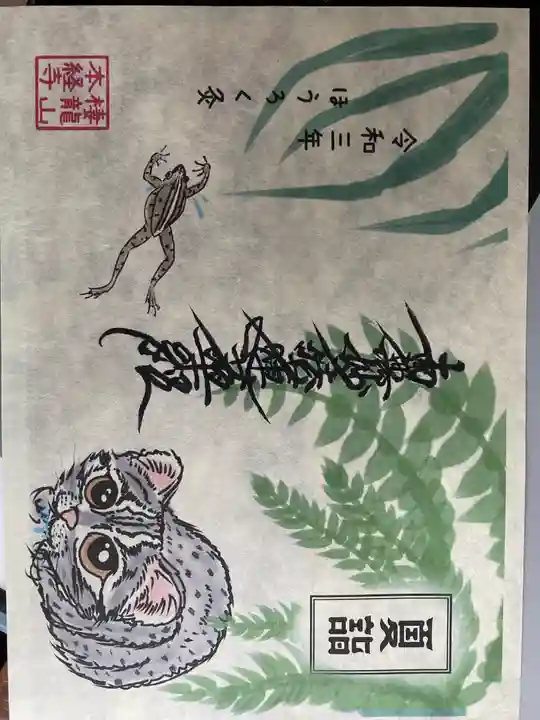 夏詣
南無妙法蓮華経
令和三年
ほうろく灸
棲龍山
本経寺